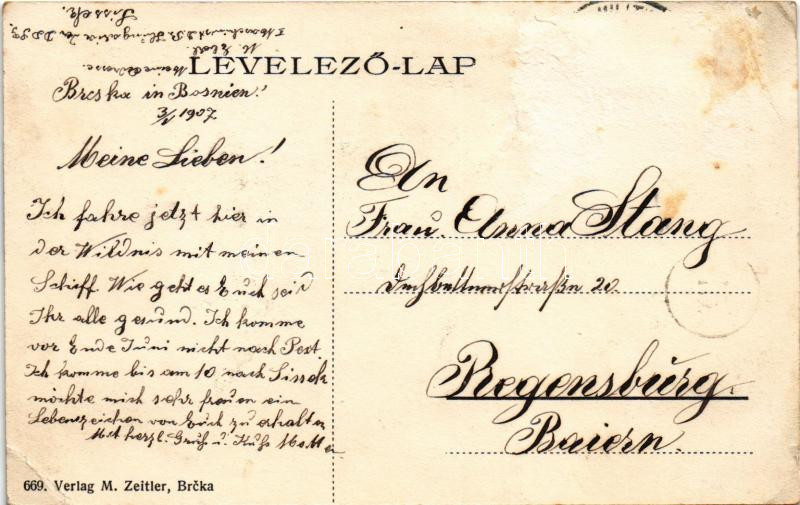 Meine Adresse.
M. Stadl.
I Maschinist D. D. Hungaria der D D S G
Sissek.
LEVELEZŐ-LAP
Brcska in Bosnien!
3/V 1907
Meine Lieben!
Ich fahre jetzt hier in
der Wildnis mit meinen
Schiff. Wie geht es Euch seid
Ihr alle gesund. Ich komme
vor Ende Juni nicht nach Pest
Ich komme bis am 10 nach Sissek
möchte mich sehr freuen ein
Lebenszeichen von Euch zu erhalten
Mit herzl. Gruß u. Kuß
An
Frau. Anna Stang
Dechbettnerstraße 20.
Regensburg.
Baiern.
669. Verlag M. Zeitler, Brčka